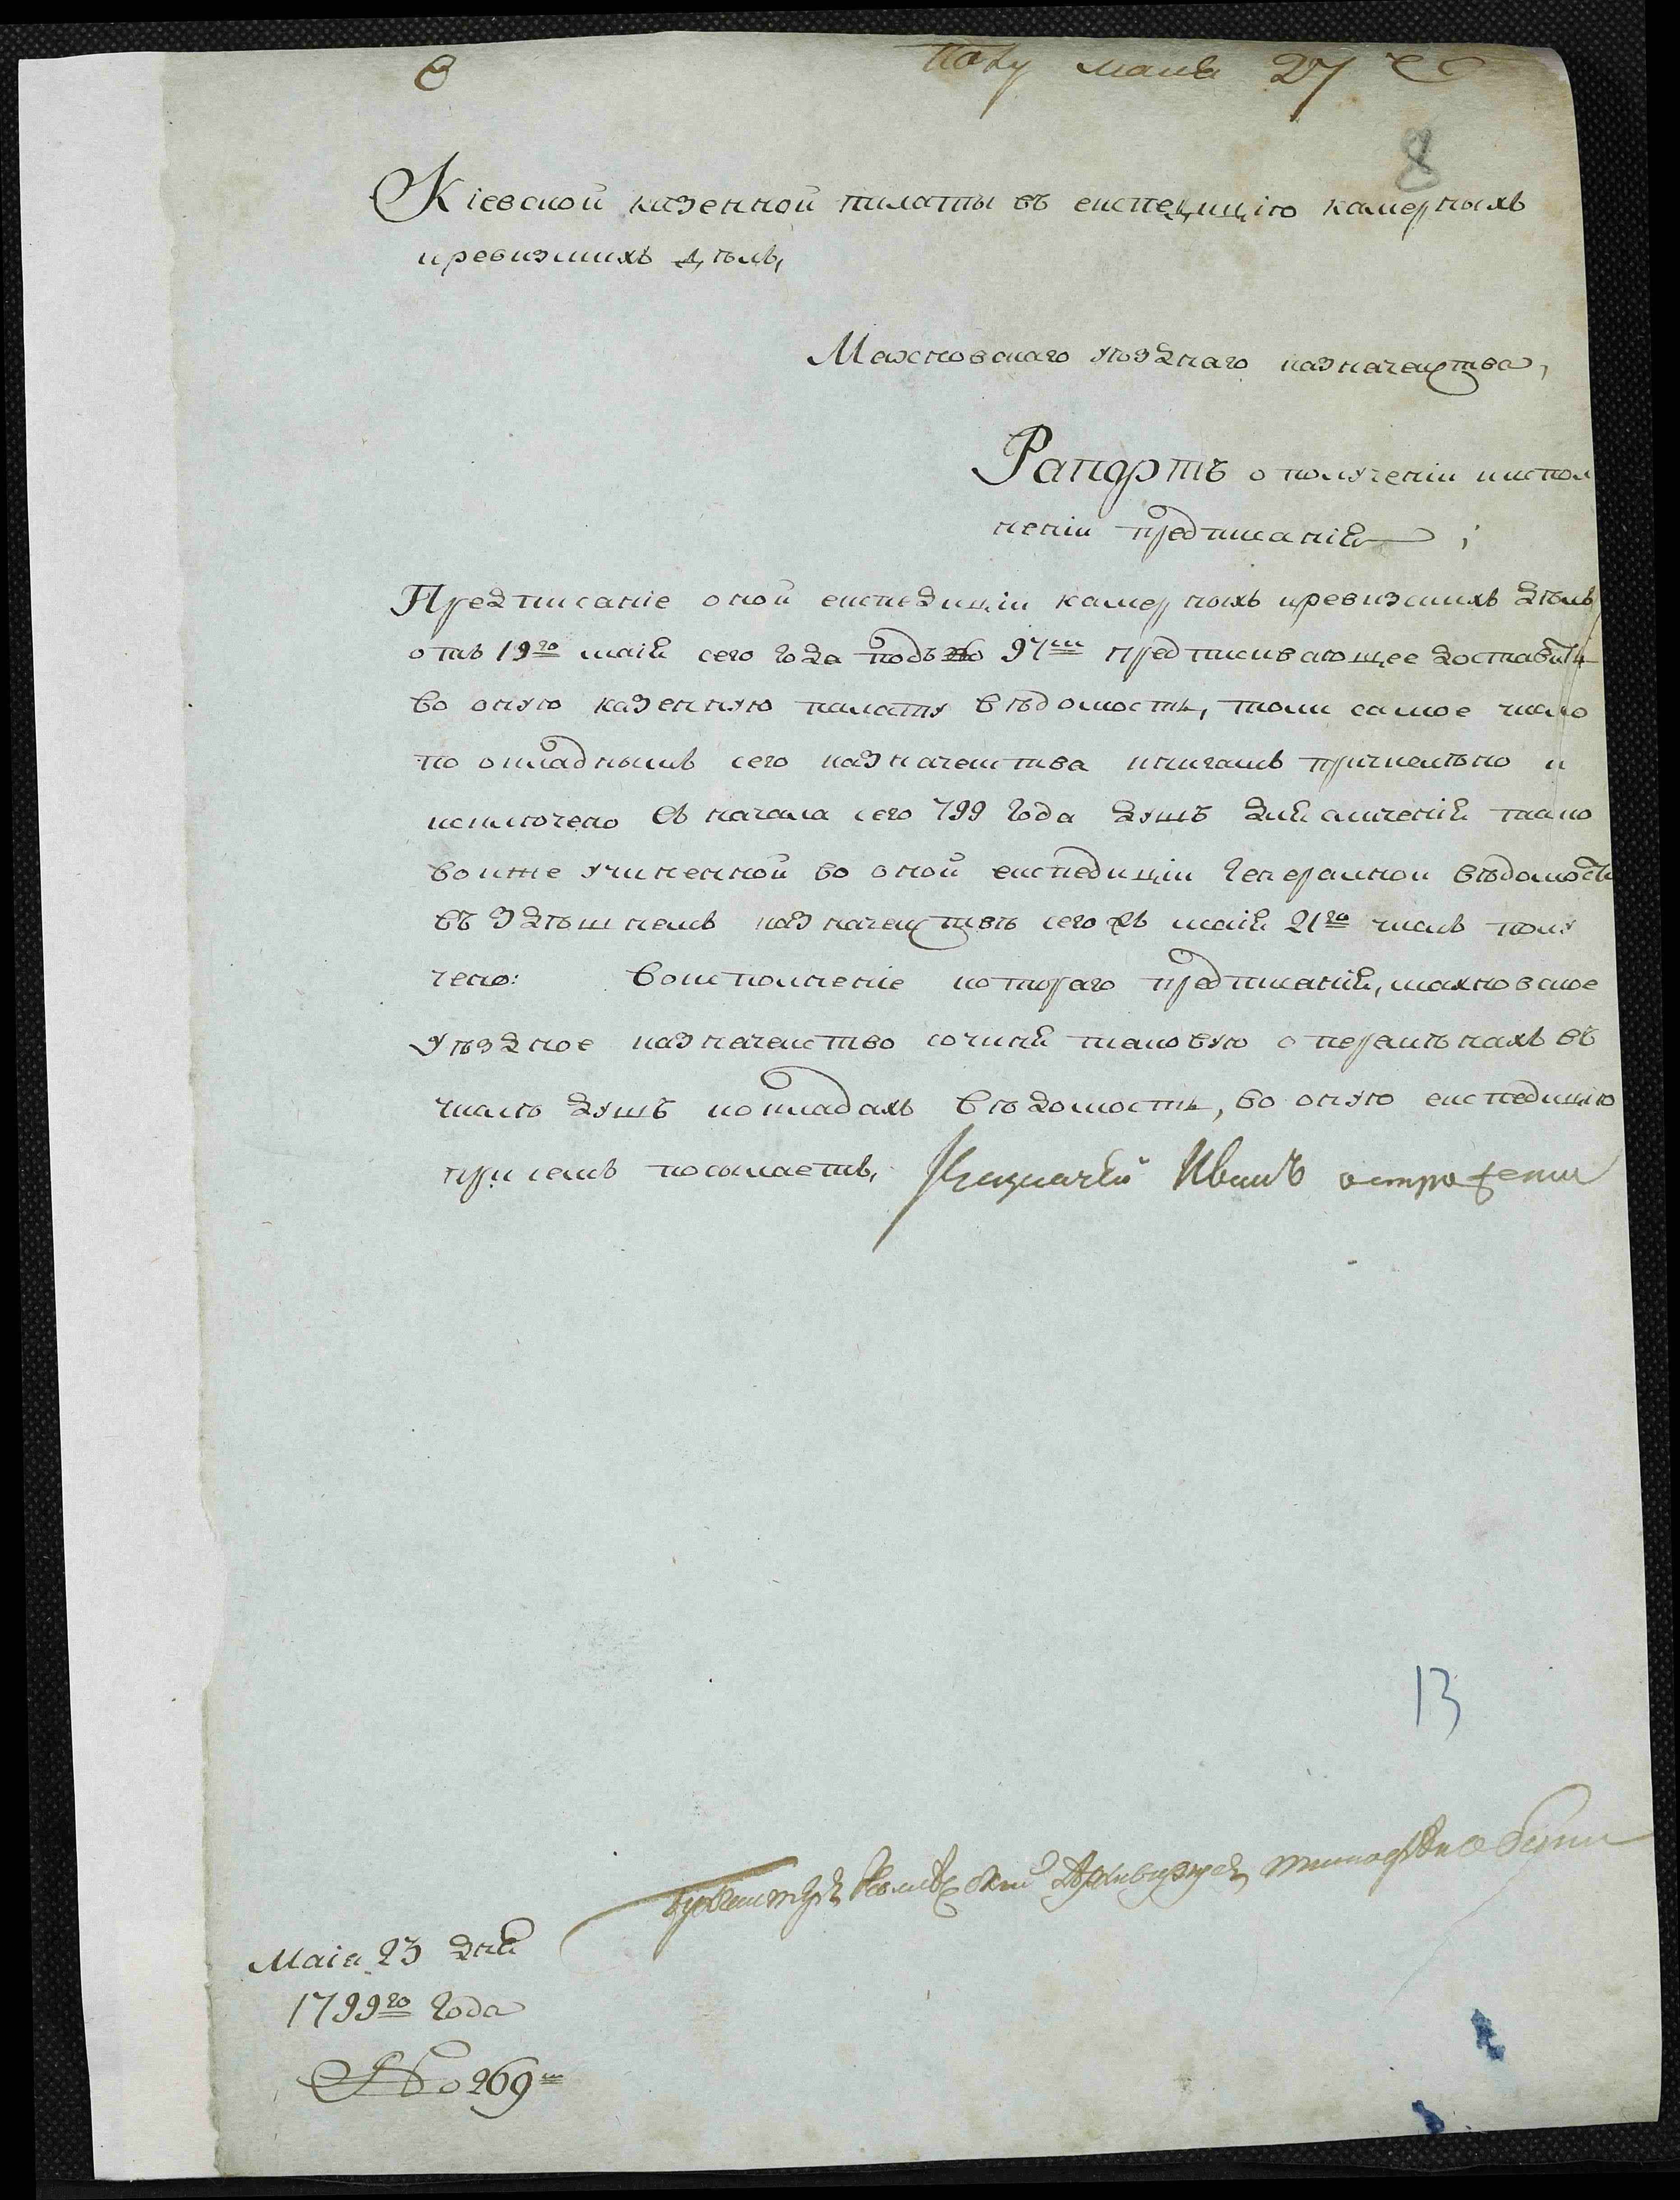 Полу маия 27
8
Кіевской казенной палаты въ експедицію камерныхъ
иревизкихъ дѣлъ,
Махновскаго уѣзднаго казначейства,
Рапортъ о полученіиииспол
неніи предписанія;
Предписаніе оной експедиціи камерныхъ иревизскихъ дѣлъ
отъ 19го маія сего года подъ No 97м предписывающее доставить
во оную казенную палату вѣдомость, толи самое число
по окладнымъ сего казначейства книгамъ причислено и
исключено съ начала сего 799 года душъ для сличенія таково
воиже учиненной во оной експедиціи генеральной вѣдомости
въ здѣшнемъ казначействѣ сего жъ маія 21го числъ полу
чено: Воисполненіе котораго предписанія, махновское
уѣздное казначейство сочиня таковую о перемѣнахъ въ
числѣ душъ иокладахъ вѣдомость, во оную експедицію
при семъ посылаетъ, Казначей Иванъ
13
Бухгалтеръ
Маія 23 дня
1799го года
No 269м